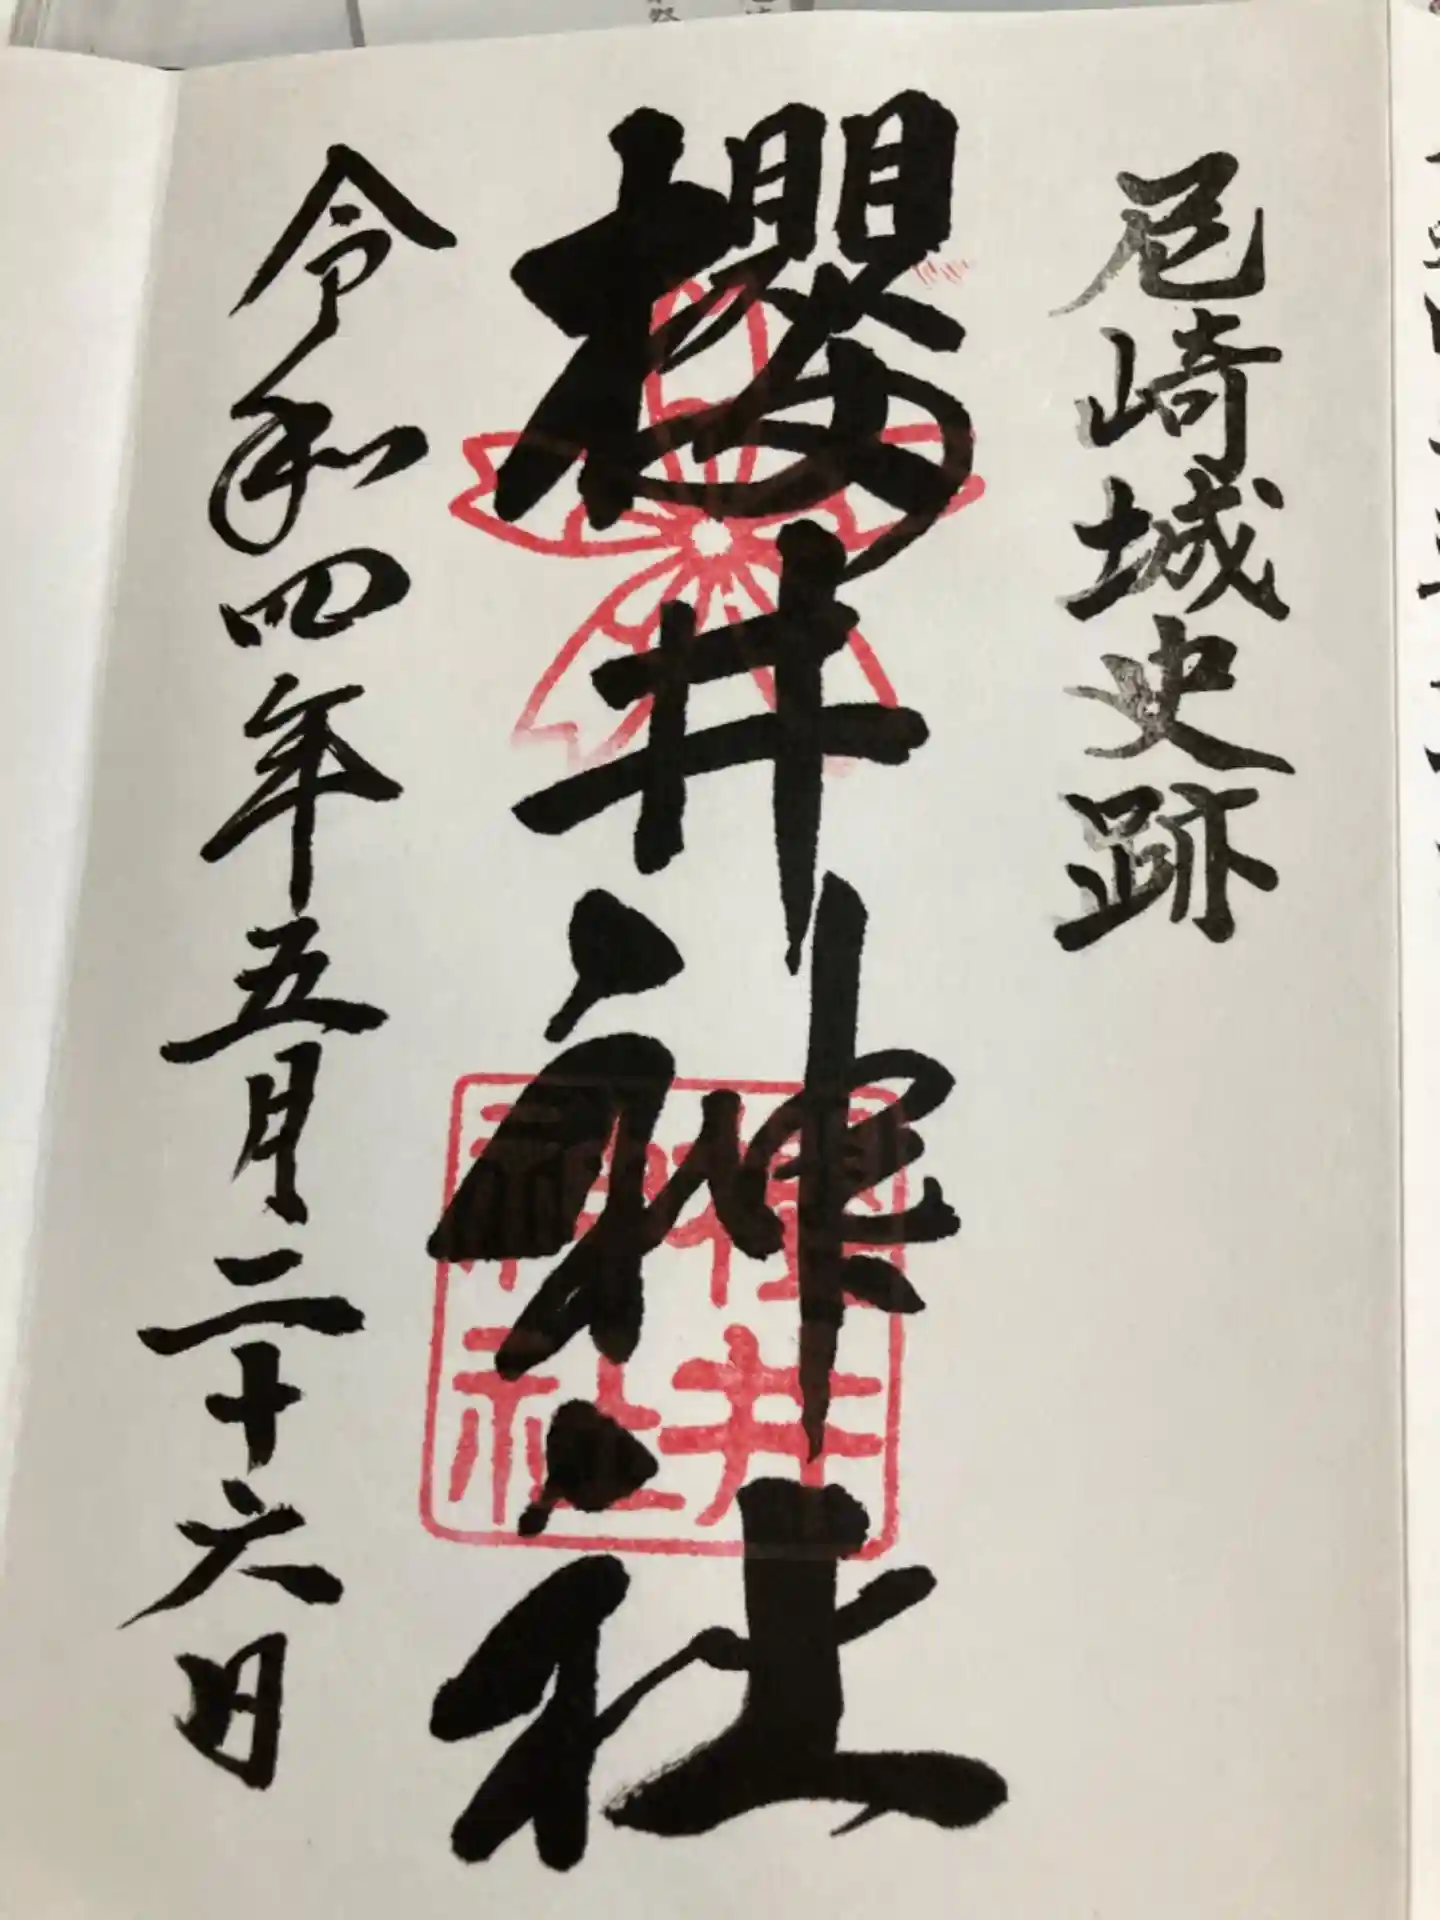 尼崎城史跡
櫻井神社
櫻井
神社
令和四年五月二十六日